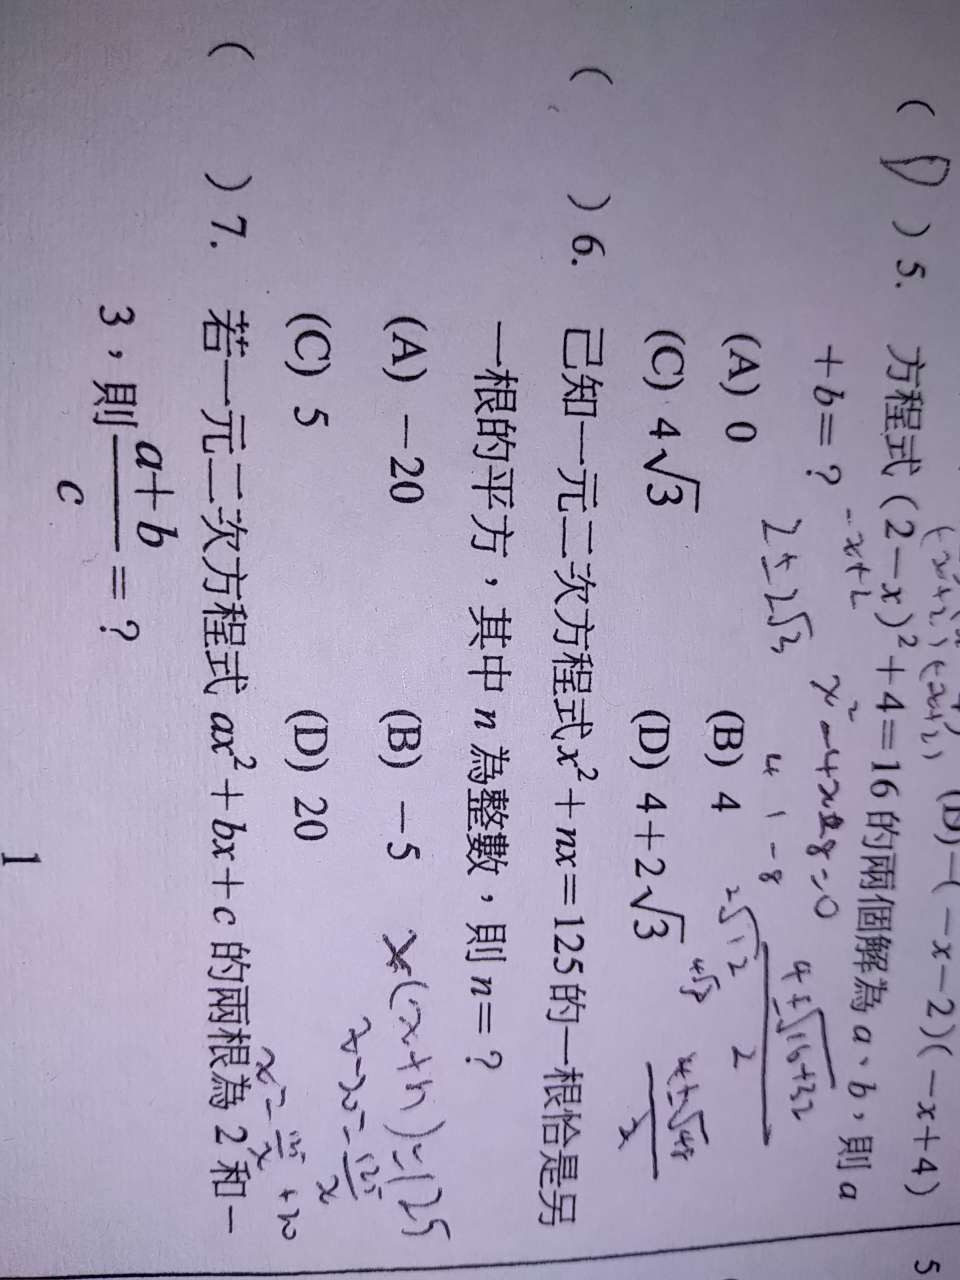 (D)-(-x-2)(-x+4)
(-x+2)(-x+2)
5
( D ) 5. 方程式(2-x)²+4=16的兩個解為a、b，則a
+b=？
-x+2
x²-4x-8=0
4±√16+32
2
2±2√3
4 1 -8
(A) 0
(B) 4
2√12
4√3
4±√48
2
(C) 4√3
(D) 4+2√3
( ) 6. 已知一元二次方程式x²+nx=125的一根恰是另
一根的平方，其中n為整數，則n=？
(A) -20
(B) -5
x(x+n)=125
(C) 5
(D) 20
x-20=125/x
x=125/x+20
( ) 7. 若一元二次方程式ax²+bx+c的兩根為2和-
3，則(a+b)/c=？
1